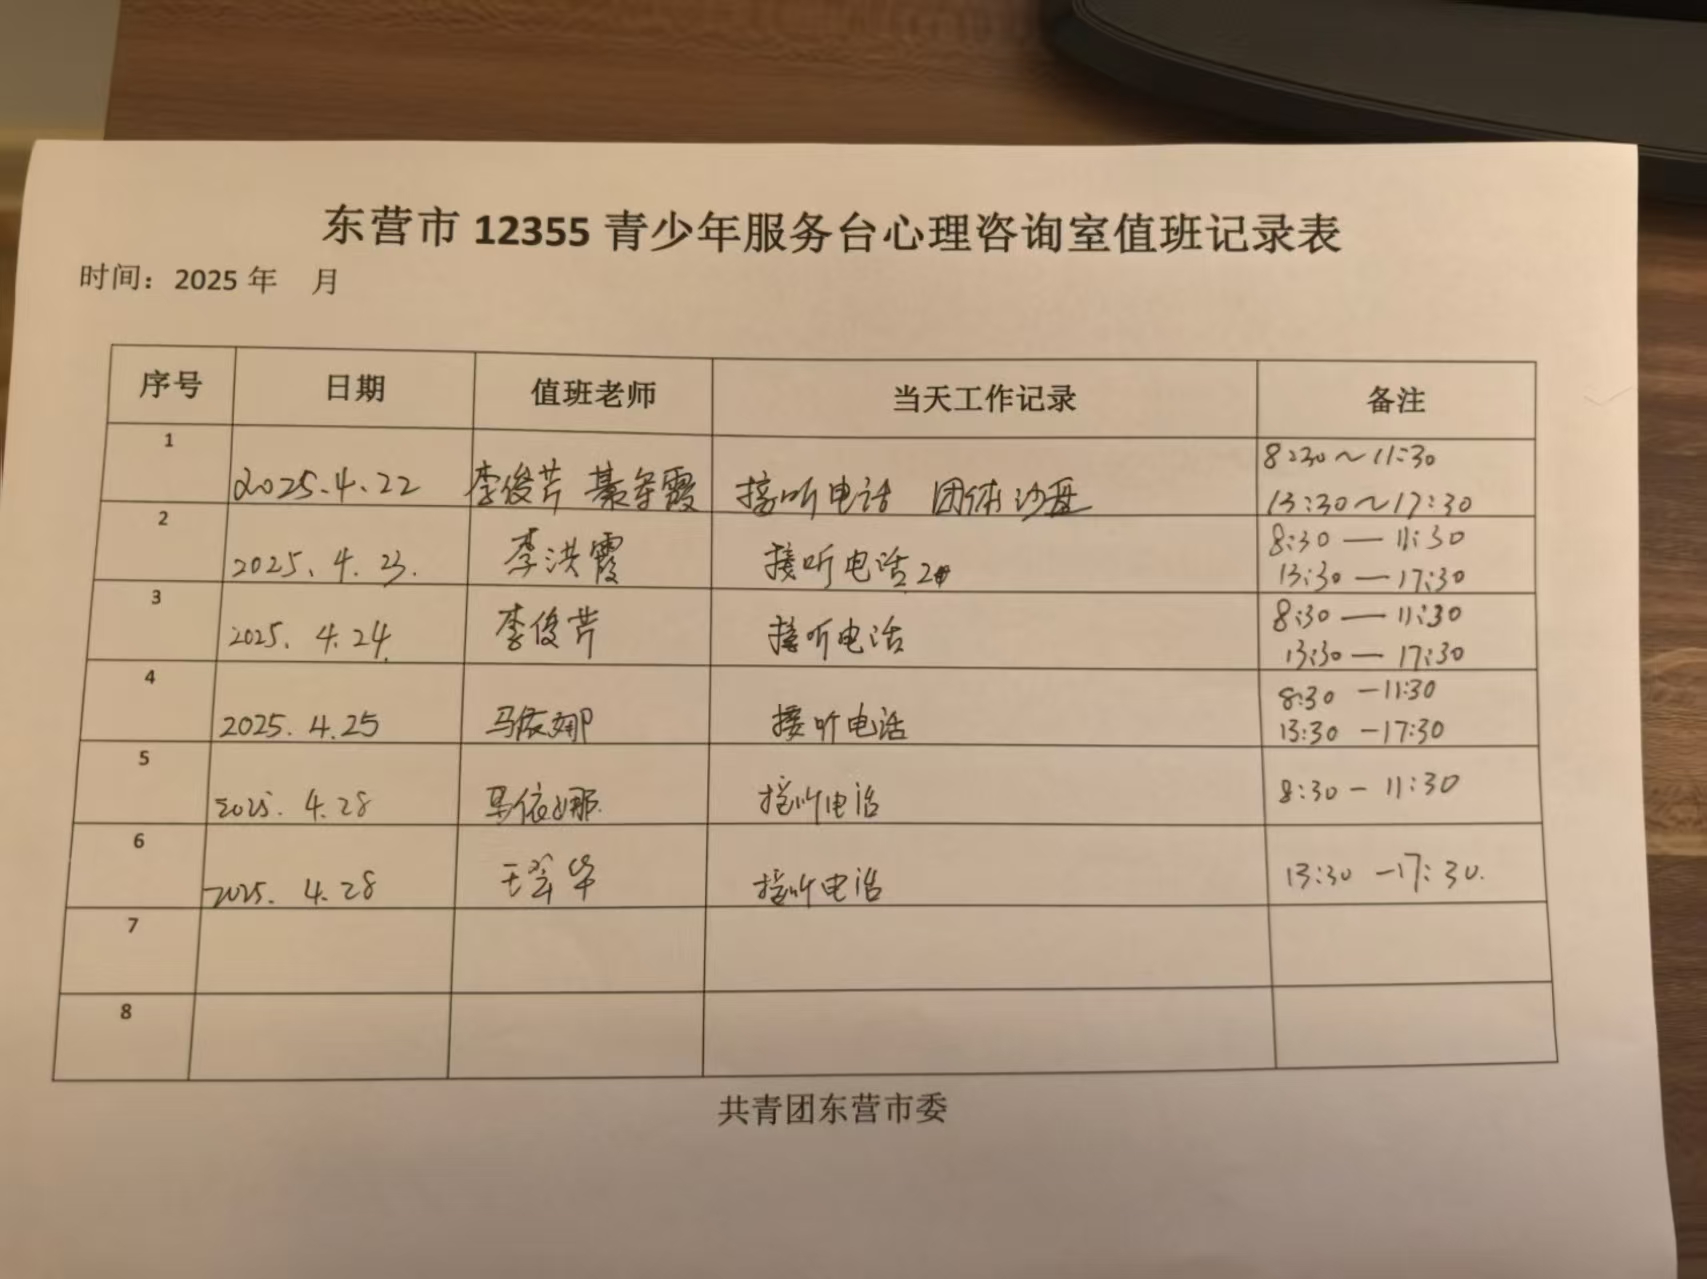 东营市 12355 青少年服务台心理咨询室值班记录表
时间：2025 年 月
序号 日期 值班老师 当天工作记录 备注
1 2025.4.22 李俊芹 霞 接听电话 团体沙盘 8:30～11:30
13:30～17:30
2 2025.4.23. 李洪霞 接听电话 8:30—11:30
13:30—17:30
3 2025.4.24. 李俊芹 接听电话 8:30—11:30
13:30—17:30
4 2025.4.25 马依娜 接听电话 8:30-11:30
13:30-17:30
5 2025.4.28 马依娜. 接听电话 8:30-11:30
6 2025.4.28 华 接听电话 13:30-17:30.
7
8
共青团东营市委